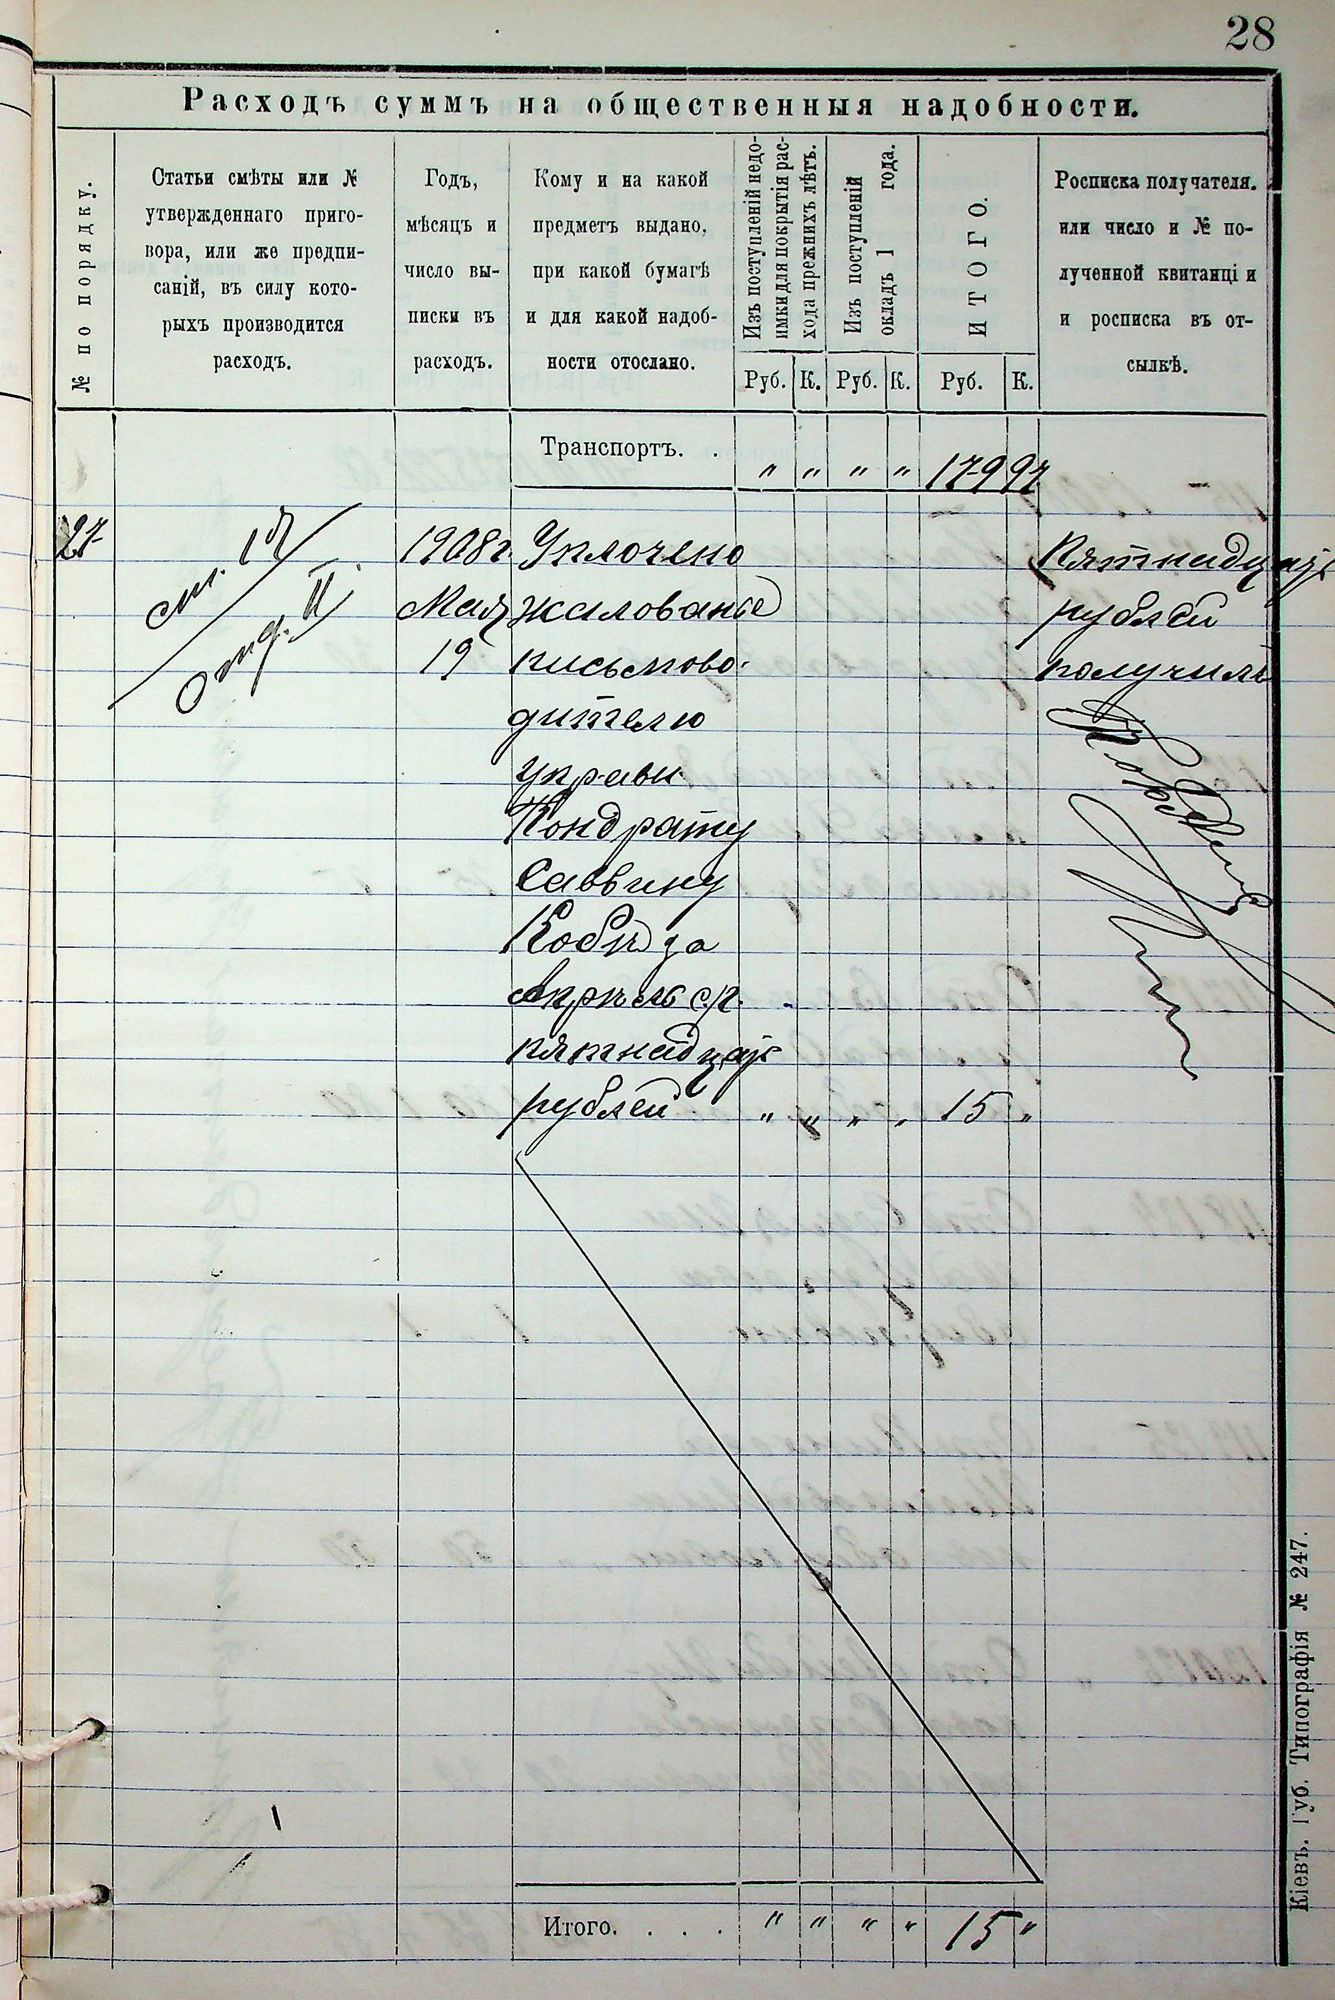 28
Расходъ суммъ на общественныя надобности.
№ по порядку.
Статьи смѣты или №
утвержденнаго приго-
вора, или же предпи-
саній, въ силу кото-
рыхъ производится
расходъ.
Годъ,
мѣсяцъ и
число вы-
писки въ
расходъ.
Кому и на какой
предметъ выдано,
при какой бумагѣ
и для какой надоб-
ности отослано.
Изъ поступленій недо-
имки для покрытія рас-
хода прежнихъ лѣтъ.
Изъ поступленій
окладъ 1 года.
ИТОГО.
Росписка получателя.
или число и № по-
лученной квитанці и
и росписка въ от-
сылкѣ.
Руб. К. Руб. К. Руб. К.
Транспортъ. . " " " " 179 97
27
ст. 17
Отд. II.
1908 г.
Мая
19
Уплочено
жалованье
письмово-
дителю
управы
Кондрату
Саввину
Кобцю за
Апрѣль с.г.
пятнадцать
рублей " " " " 15 "
Пятнадцать
рублей
получилъ
Итого. . . . " " " " 15 "
Кіевъ. Губ. Типографія № 247.